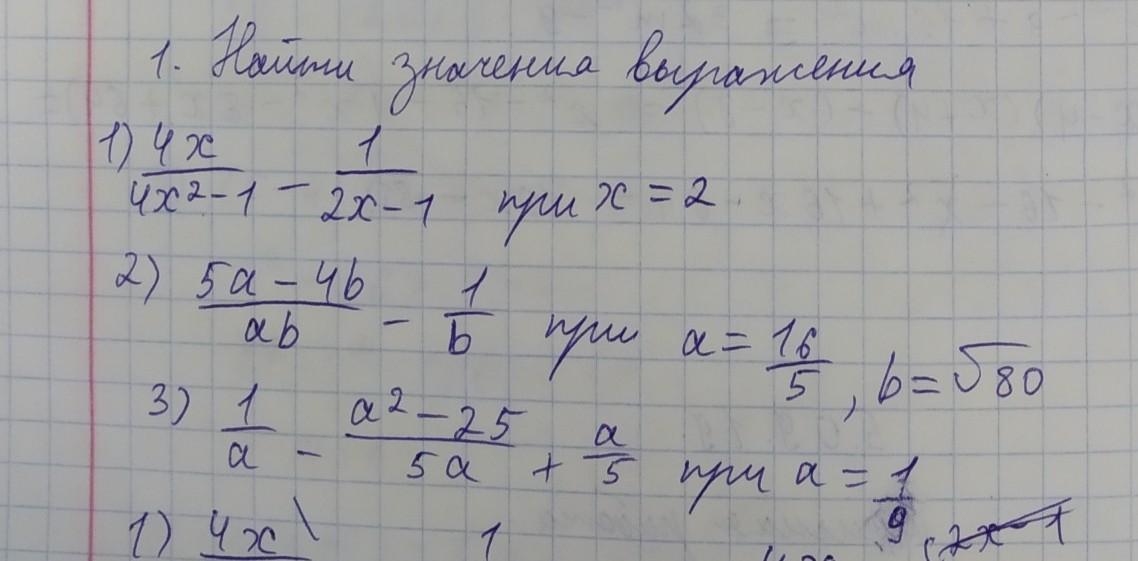 1. Найти значения выражения
1) 4x/(4x²-1) - 1/(2x-1) при x = 2
2) (5a - 4b)/(ab) - 1/b при a = 16/5, b = √80
3) 1/a - (a² - 25)/(5a) + a/5 при a = 1/9
1) 4x 1 2x-1